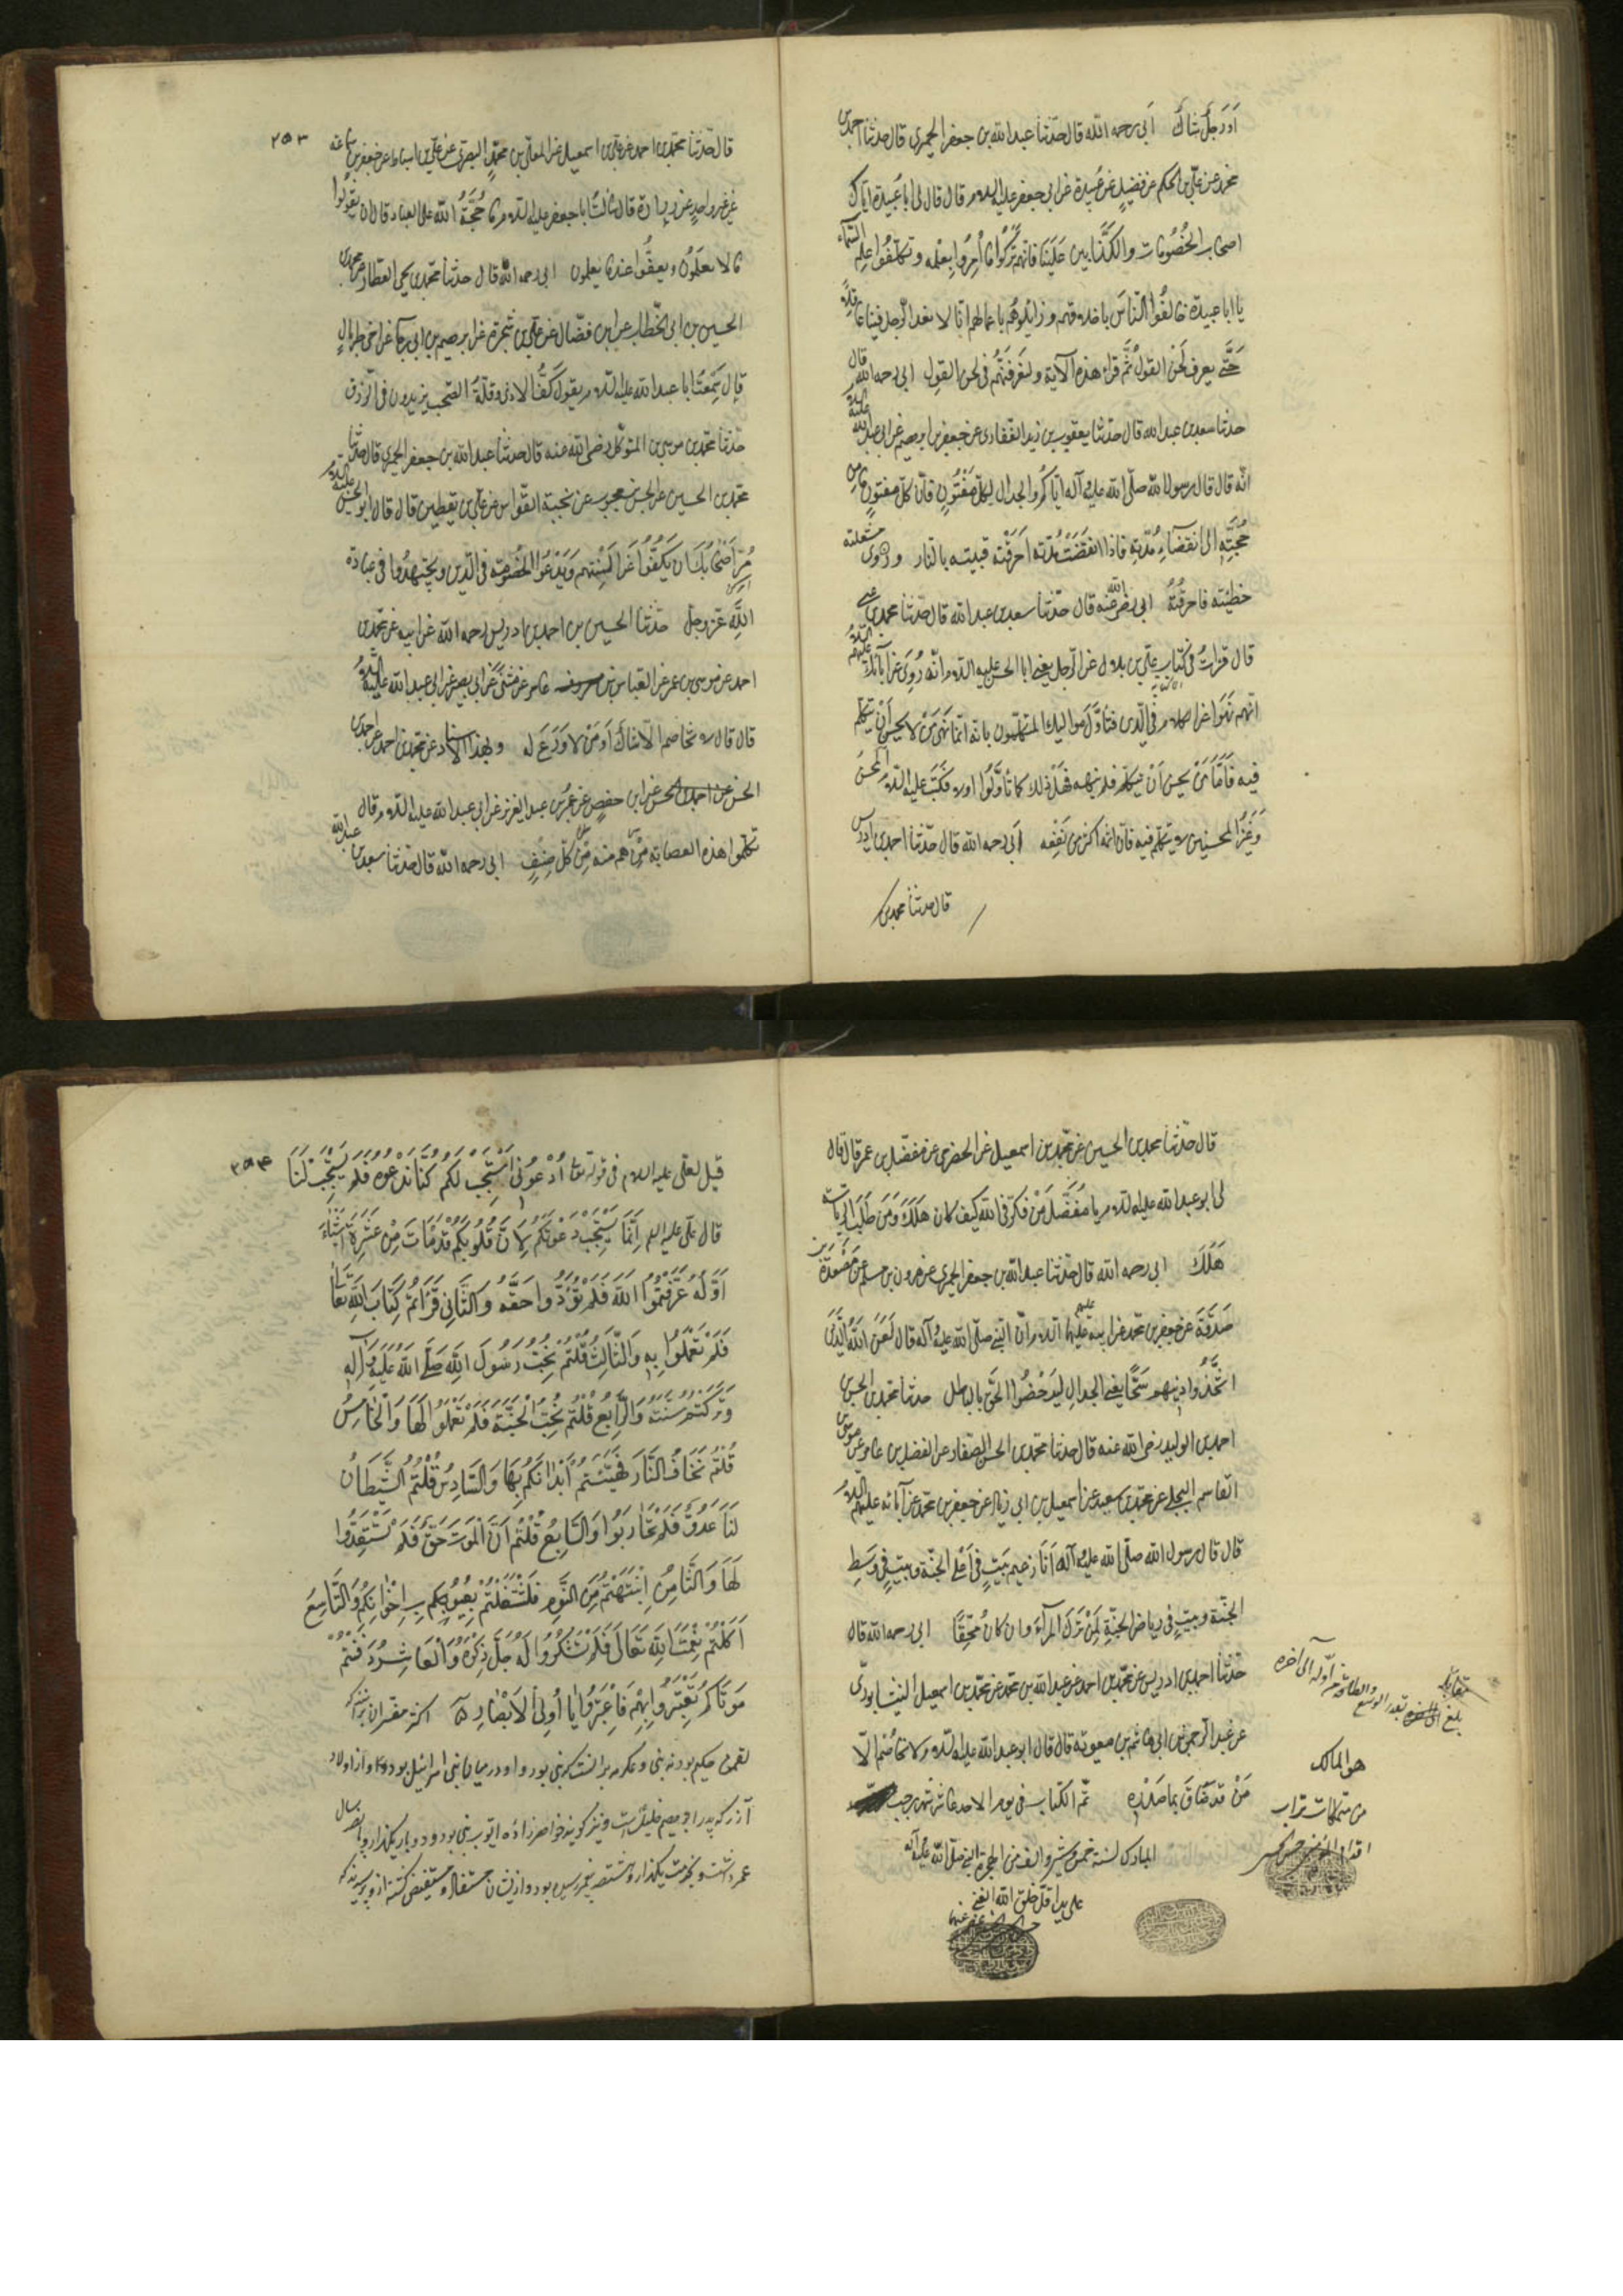 أو رجل شاك أبي رحمه الله قال حدثنا عبد الله بن جعفر الحميري قال حدثنا احمد بن
محمد عن علي بن الحكم عن فضيل عن عبيدة عن ابي جعفر عليه السلام قال قال لي يا با عبيدة اياك
اصحاب الخصومات والكذابين علينا فانهم تركوا ما أمروا بعلمه وتكلفوا علم السماء
يا ابا عبيدة خالقوا الناس باخلاقهم وزايلوهم باعمالهم انا لا نعد الرجل فينا عاقلا
حتى يعرف لحن القول ثم قرأ هذه الآية ولتعرفنهم في لحن القول ابي رحمه الله قال
حدثنا سعد بن عبد الله قال حدثنا يعقوب بن يزيد الغفاري عن جعفر بن ابرهيم عن ابي عبد الله عليه السلام
انه قال قال رسول الله صلى الله عليه وآله اياكم والجدال لكل مفتون فان كل مفتون ملقن
حجته الى انقضاء مدته فاذا انقضت مدته احرقته فتنته بالنار وروى شغلته
خطيئته فاحرقته ابي رضي الله عنه قال حدثنا سعد بن عبد الله قال حدثنا محمد بن عيسى
قال قرأت في كتاب علي بن بلال عن الرجل يعني ابا الحسن عليه السلام انه روي عن آبائك عليهم السلام
انهم نهوا عن الكلام في الدين فتأول مواليك المتكلمون بانه انما نهى من لا يحسن أن يتكلم
فيه فأما من يحسن أن يتكلم فلم ينهه فهل ذلك كما تأولوا اولا فكتب عليه السلام المحسن
وغير المحسن لا يتكلم فيه فان اثمه اكثر من نفعه أبي رحمه الله قال حدثنا احمد بن ادريس
قال حدثنا محمد بن
٢٥٣
قال حدثنا محمد بن احمد عن علي بن اسمعيل عن المعلى بن محمد البصري عن علي بن اسباط عن جعفر بن سماعة
عن غير واحد عن زرارة قال سألت ابا جعفر عليه السلام ما حجة الله على العباد قال ان يقولوا
ما لا يعلمون ويقفوا عند ما يعلمون ابي رحمه الله قال حدثنا محمد بن يحيى العطار عن محمد بن
الحسين بن ابي الخطاب عن ابن فضال عن علي بن شجرة عن ابرهيم بن ابي رجا عن اخي طربال
قال سمعت ابا عبد الله عليه السلام يقول كف الاذى وقلة الصخب يزيدون في الرزق
حدثنا محمد بن موسى بن المتوكل رضي الله عنه قال حدثنا عبد الله بن جعفر الحميري قال حدثنا
محمد بن الحسين عن الحسن بن محبوب عن نجية القواس عن علي بن يقطين قال قال ابو الحسن عليه السلام
مر أصحابك ان يكفوا من السنتهم ويدعوا الخصومة في الدين ويجتهدوا في عبادة
الله عز وجل حدثنا الحسين بن احمد بن ادريس رحمه الله عن ابيه عن محمد بن
احمد عن موسى بن عمر عن العباس بن عامر عن مثنى عن ابي بصير عن ابي عبد الله عليه السلام
قال قال لا يخاصم الا شاك أو من لا ورع له وبهذا الاسناد عن محمد بن احمد عن احمد بن
الحسن عن ابي حفص عن عمر بن عبد العزيز عن ابي عبد الله عليه السلام قال
تكلموا هذه العصابة من هم منه من كل صنف ابي رحمه الله قال حدثنا سعد بن عبد الله
قال حدثنا محمد بن الحسين عن محمد بن اسمعيل عن الحضرمي عن مفضل بن عمر قال قال
لي ابو عبد الله عليه السلام يا مفضل من فكر في الله كيف كان هلك ومن طلب الرياسة
هلك ابي رحمه الله قال حدثنا عبد الله بن جعفر الحميري عن هرون بن مسلم عن مسعدة بن
صدقة عن جعفر بن محمد عن ابيه عليهما السلام ان النبي صلى الله عليه وآله قال لعن الله الذين
اتخذوا دينهم شحا يعني الجدال ليدحضوا الحق بالباطل حدثنا محمد بن الحسن بن
احمد بن الوليد رضي الله عنه قال حدثنا محمد بن الحسن الصفار عن الفضل بن عامر عن موسى بن
القاسم البجلي عن محمد بن سعيد عن اسمعيل بن ابي زياد عن جعفر بن محمد عن آبائه عليهم السلام
قال قال رسول الله صلى الله عليه وآله أنا زعيم بيت في أعلى الجنة وبيت في وسط
الجنة وبيت في رياض الجنة لمن ترك المراء وان كان محقا ابي رحمه الله قال
حدثنا احمد بن ادريس عن محمد بن احمد عن عبد الله بن محمد عن محمد بن اسمعيل النيشابوري
عن عبد الرحمن بن ابي هاشم بن معوية قال قال ابو عبد الله عليه السلام لا يخاصم الا
من قد ضاق بما صدره تم الكتاب في يوم الاحد عاشر شهر رجب
المبارك لسنة خمس وعشر والف من الهجرة النبي صلى الله عليه وآله
على يد اقل خلق الله الغني
من اوله الى آخره
بلغ بقدر الوسع والطاقة
هو المالك
من متملكات تراب
اقدام المؤمنين
٢٥٤
قيل لعلي عليه السلام في قوله تعالى أدعوني أستجب لكم كنا ندعوه فلم يستجب لنا
قال علي عليه السلام إنما يستجب دعوتكم لأن قلوبكم قد مات من عشرة أشياء
أوله عرفتموا الله فلم تؤدوا حقه والثاني قرأتم كتاب الله تعالى
فلم تعملوا به والثالث قلتم نحب رسول الله صلى الله عليه وآله
وتركتم سنته والرابع قلتم نحب الجنة فلم تعملوا لها والخامس
قلتم نخاف النار فهيئتم أبدانكم بها والسادس قلتم الشيطان
لنا عدو فلم تحاربوا والسابع قلتم أن الموت حق فلم تستعدوا
لها والثامن انتبهتم من النوم فلشتغلتم بعيوبكم ب إخوانكم والتاسع
أكلتم نعمت الله تعالى فلم تشكروا له جل ذكره والعاشر دفنتم
موتاكم تعتبروا بهم فاعتبروا يا أولي الأبصار اكثر مفسران برانند كه
لقمن حكيم بود نه نبي وعكرمه برانست كه نبي بود واو در ميان بني اسرائيل بود واز اولاد
آزر كه پدر ابرهيم خليل است ونيز گويند خواهرزاده ايوب نبي بود ودوبار يكهزار وپانصد سال